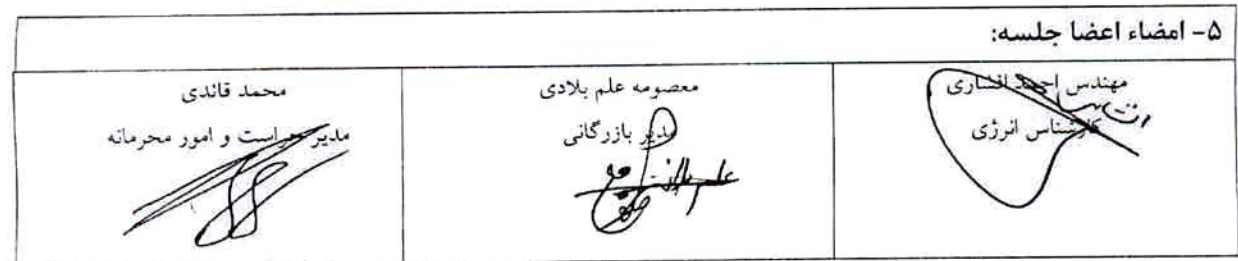 ۵- امضاء اعضا جلسه:
مهندس احمد افشاری
کارشناس انرژی
معصومه علم بلادی
مدیر بازرگانی
محمد قائدی
مدیر حراست و امور محرمانه